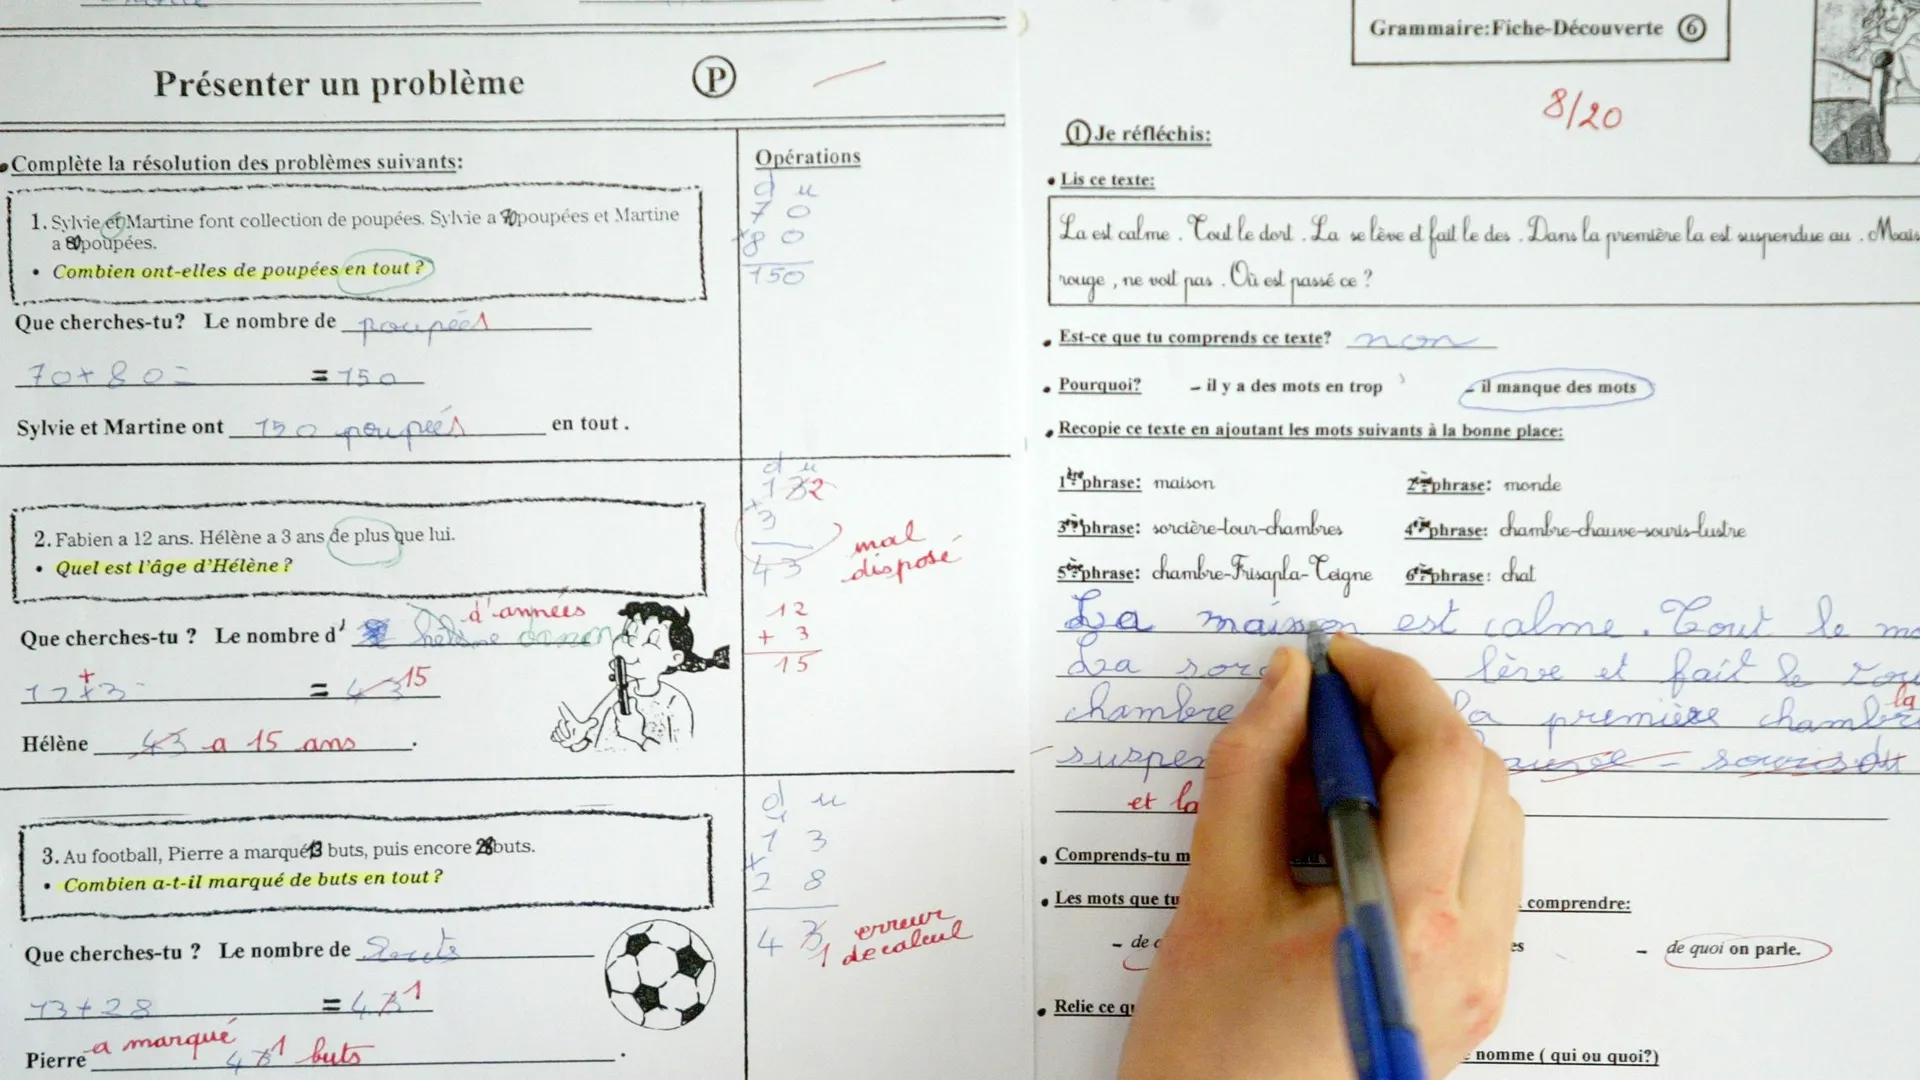 Présenter un problème P
Complète la résolution des problèmes suivants:
Opérations
1. Sylvie et Martine font collection de poupées. Sylvie a 70 poupées et Martine
a 80 poupées.
• Combien ont-elles de poupées en tout ?
d u
7 0
+ 8 0
150
Que cherches-tu? Le nombre de poupées
70+80= = 150
Sylvie et Martine ont 150 poupées en tout .
2. Fabien a 12 ans. Hélène a 3 ans de plus que lui.
• Quel est l'âge d'Hélène ?
d u
1 2
+
3
43
mal
disposé
12
+ 3
15
d'années
Que cherches-tu ? Le nombre d' hélène
12+3 = 43 15
Hélène 43 a 15 ans .
3. Au football, Pierre a marqué 13 buts, puis encore 28 buts.
• Combien a-t-il marqué de buts en tout ?
d u
1
1 3
+
2 8
4 1
erreur
de calcul
Que cherches-tu ? Le nombre de buts
13+28 = 4 1
Pierre a marqué 4 1 buts .
Grammaire:Fiche-Découverte 6
8/20
1 Je réfléchis:
• Lis ce texte:
La est calme . Tout le dort . La se lève et fait le des . Dans la première la est suspendue au . Mais
rouge , ne voit pas . Où est passé ce ?
• Est-ce que tu comprends ce texte? non
• Pourquoi? – il y a des mots en trop – il manque des mots
• Recopie ce texte en ajoutant les mots suivants à la bonne place:
1ère phrase: maison 2è phrase: monde
3è phrase: sorcière-tour-chambres 4è phrase: chambre-chauve-souris-lustre
5è phrase: chambre-Frisapla-Teigne 6è phrase: chat
La maison est calme. Tout le mo
La sorc lève et fait le tou
la
chambre la première chambre
suspen - souris du
et la
• Comprends-tu m
• Les mots que tu comprendre:
– de es – de quoi on parle.
• Relie ce qu
nomme ( qui ou quoi?)